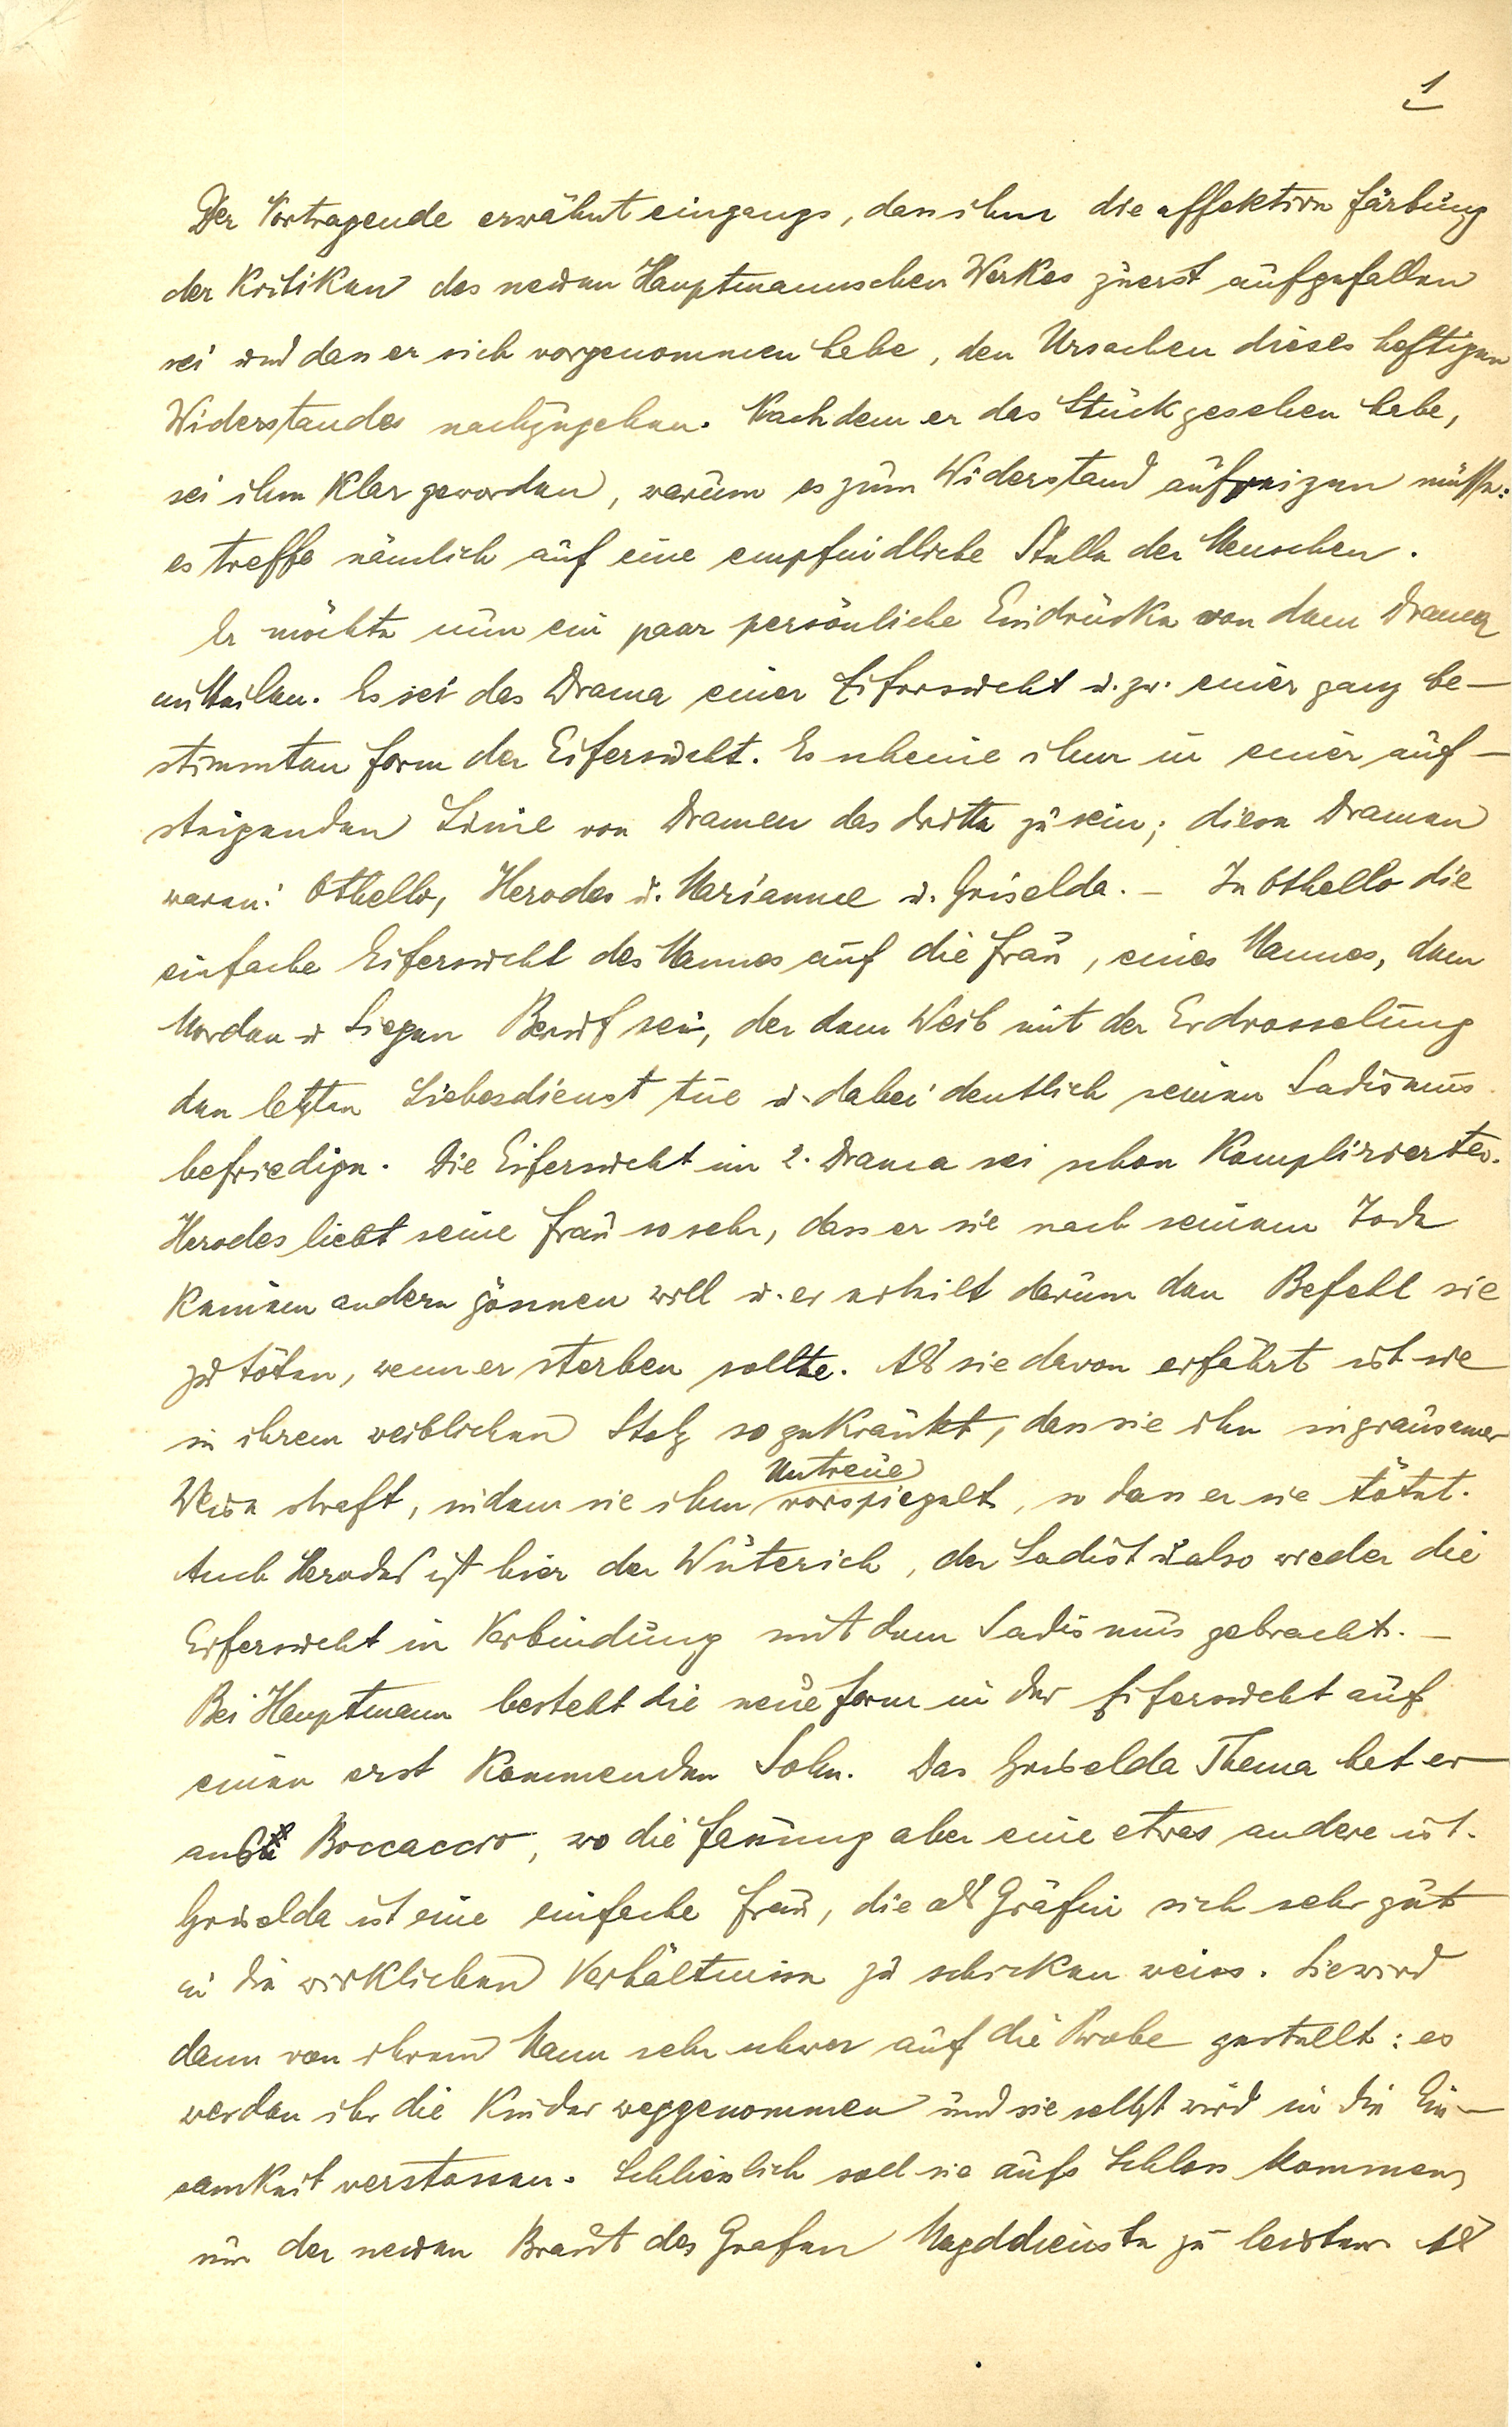 1
Der Vortragende erwähnt eingangs, dass ihm die affektive Färbung
der Kritiken des neuen Hauptmannschen Werkes zuerst aufgefallen
sei und dass er sich vorgenommen habe, den Ursachen dieses heftigen
Widerstandes nachzugehen. Nachdem er das Stück gesehen habe,
sei ihm klar geworden, warum es zum Widerstand aufreizen müsse:
es treffe nämlich auf eine empfindliche Stelle der Menschen.
Er möchte nun ein paar persönliche Eindrücke von dem Drama
mitteilen. Es sei das Drama einer Eifersucht u. zw. einer ganz be-
stimmten Form der Eifersucht. Es scheine ihm in einer auf-
steigenden Linie von Dramen das dritte zu sein; diese Dramen
waren: Othello, Herodes u. Mariamne u. Griselda. - In Othello die
einfache Eifersucht des Mannes auf die Frau, eines Mannes, dem
Morden u Siegen Beruf sei, der dem Weib mit der Erdrosselung
den letzten Liebesdienst tue u. dabei deutlich seinen Sadismus
befriedige. Die Eifersucht im 2. Drama sei schon komplizierter.
Herodes liebt seine Frau so sehr, dass er sie nach seinem Tode
keinem andern gönnen will u. er erteilt darum den Befehl sie
zu töten, wenn er sterben sollte. Als sie davon erfährt ist sie
in ihrem weiblichen Stolz so gekränkt, dass sie ihn in grausamer
Weise straft, indem sie ihm Untreue vorspiegelt, so dass er sie tötet.
Auch Herodes ist hier der Wüterich, der Sadist u also wieder die
Eifersucht in Verbindung mit dem Sadismus gebracht. -
Bei Hauptmann besteht die neue Form in der Eifersucht auf
einen erst kommenden Sohn. Das Griselda Thema hat er
aus Boccaccio, wo die Fassung aber eine etwas andere ist.
Griselda ist eine einfache Frau, die als Gräfin sich sehr gut
in die wirklichen Verhältnisse zu schicken weiss. Sie wird
dann von ihrem Mann sehr schwer auf die Probe gestellt: es
werden ihr die Kinder weggenommen und sie selbst wird in die Ein-
samkeit verstossen. Schliesslich soll sie aufs Schloss kommen,
um der neuen Braut des Grafen Magddienste zu leisten. Als